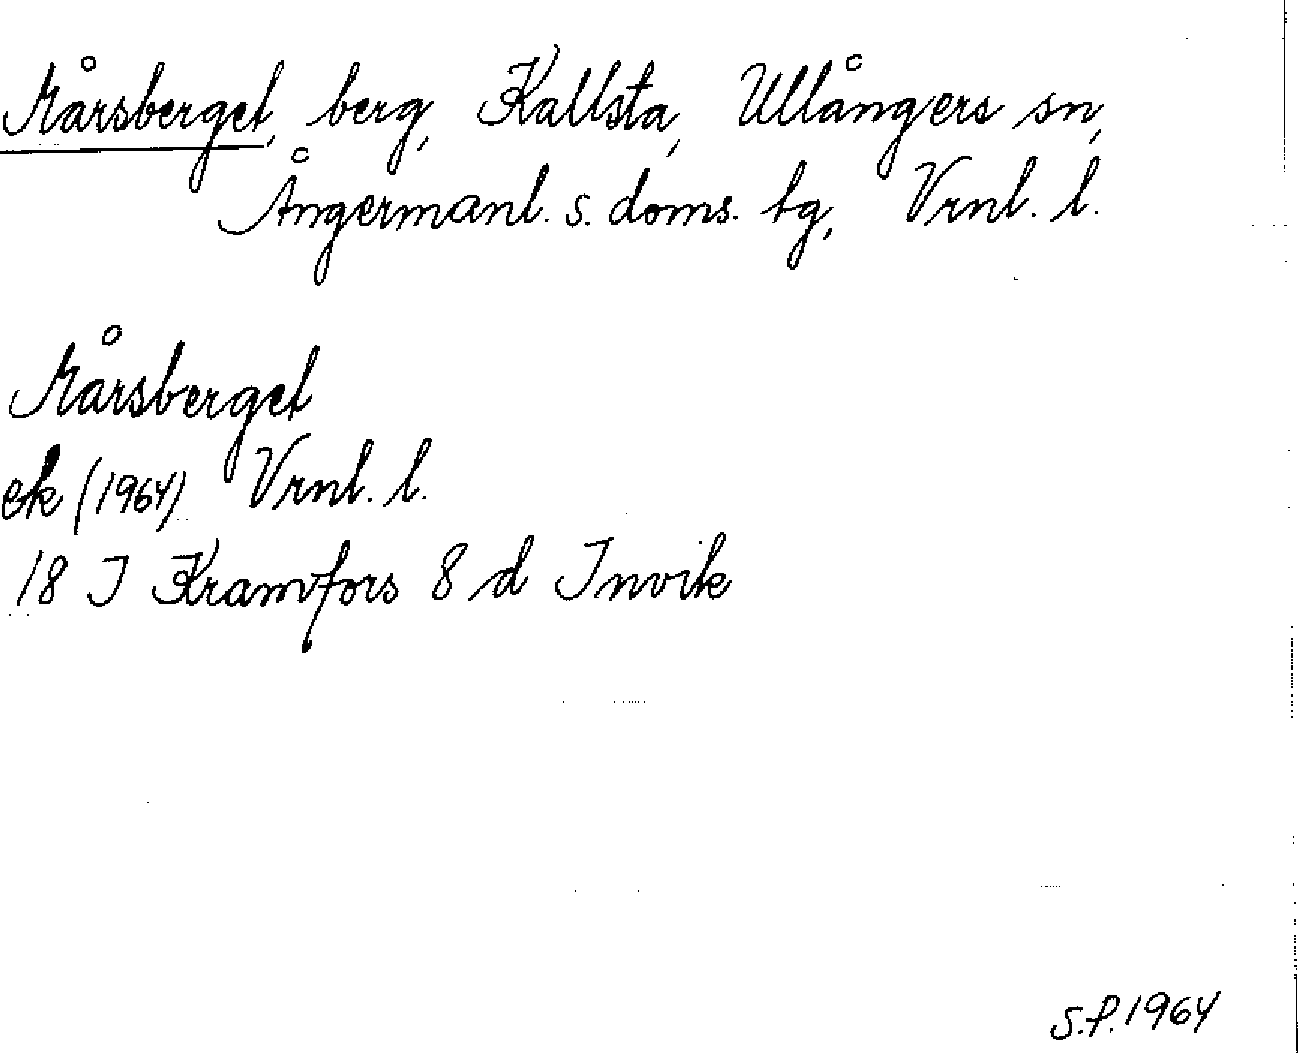 Mårsberget, berg, Kallsta, Ullångers sn,
Ångermanl. s. doms. tg, Vrnl. l.
Mårsberget
ek (1964) Vrnl. l.
18 J Kramfors 8 d Invik
S.P. 1964